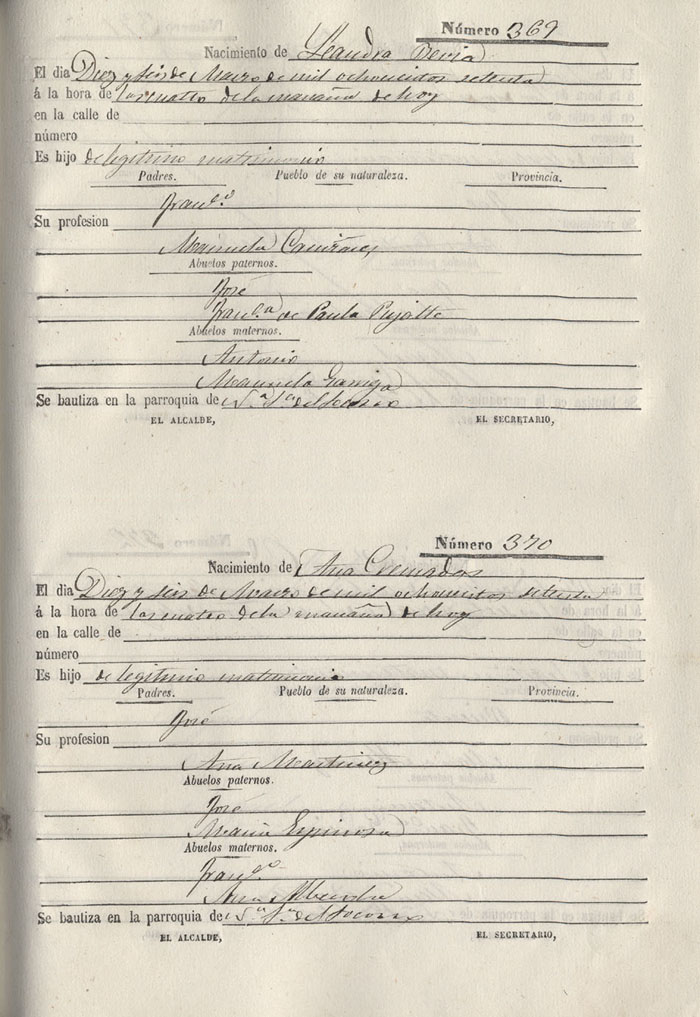 Número 369
Nacimiento de Leandra Devia
El dia Diez y seis de Marzo de mil ochocientos setenta
á la hora de las cuatro de la mañana de hoy
en la calle de
número
Es hijo de legitimo matrimonio
Padres. Pueblo de su naturaleza. Provincia.
Fran.co
Su profesion
Manuela
Abuelos paternos.
José
Fran.ca de Paula Pujalte
Abuelos maternos.
Antonio
Manuela Garriga
Se bautiza en la parroquia de N.a S.a del Socorro
EL ALCALDE, EL SECRETARIO,
Número 370
Nacimiento de Ana Cremades
El dia Diez y seis de Marzo de mil ochocientos setenta
á la hora de las cuatro de la mañana de hoy
en la calle de
número
Es hijo de legitimo matrimonio
Padres. Pueblo de su naturaleza. Provincia.
José
Su profesion
Ana Martinez
Abuelos paternos.
José
Maria Espinosa
Abuelos maternos.
Fran.co
Ana
Se bautiza en la parroquia de N.a S.a del Socorro
EL ALCALDE, EL SECRETARIO,